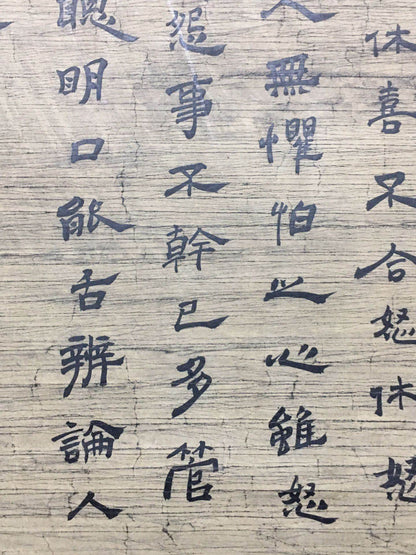 休喜不合怒休怒
人無懼怕之心雖怒
怨事不幹已多管
聰明口能舌辨論人